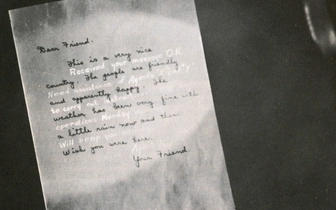 Dear Friend.
This is a very nice
Received your message O.K.
country. The people are friendly
Need
and apparently happy. The
to carry out
weather has been very fine with
operations Monday
a little rain now and then.
Will
Wish you were here.
Your Friend